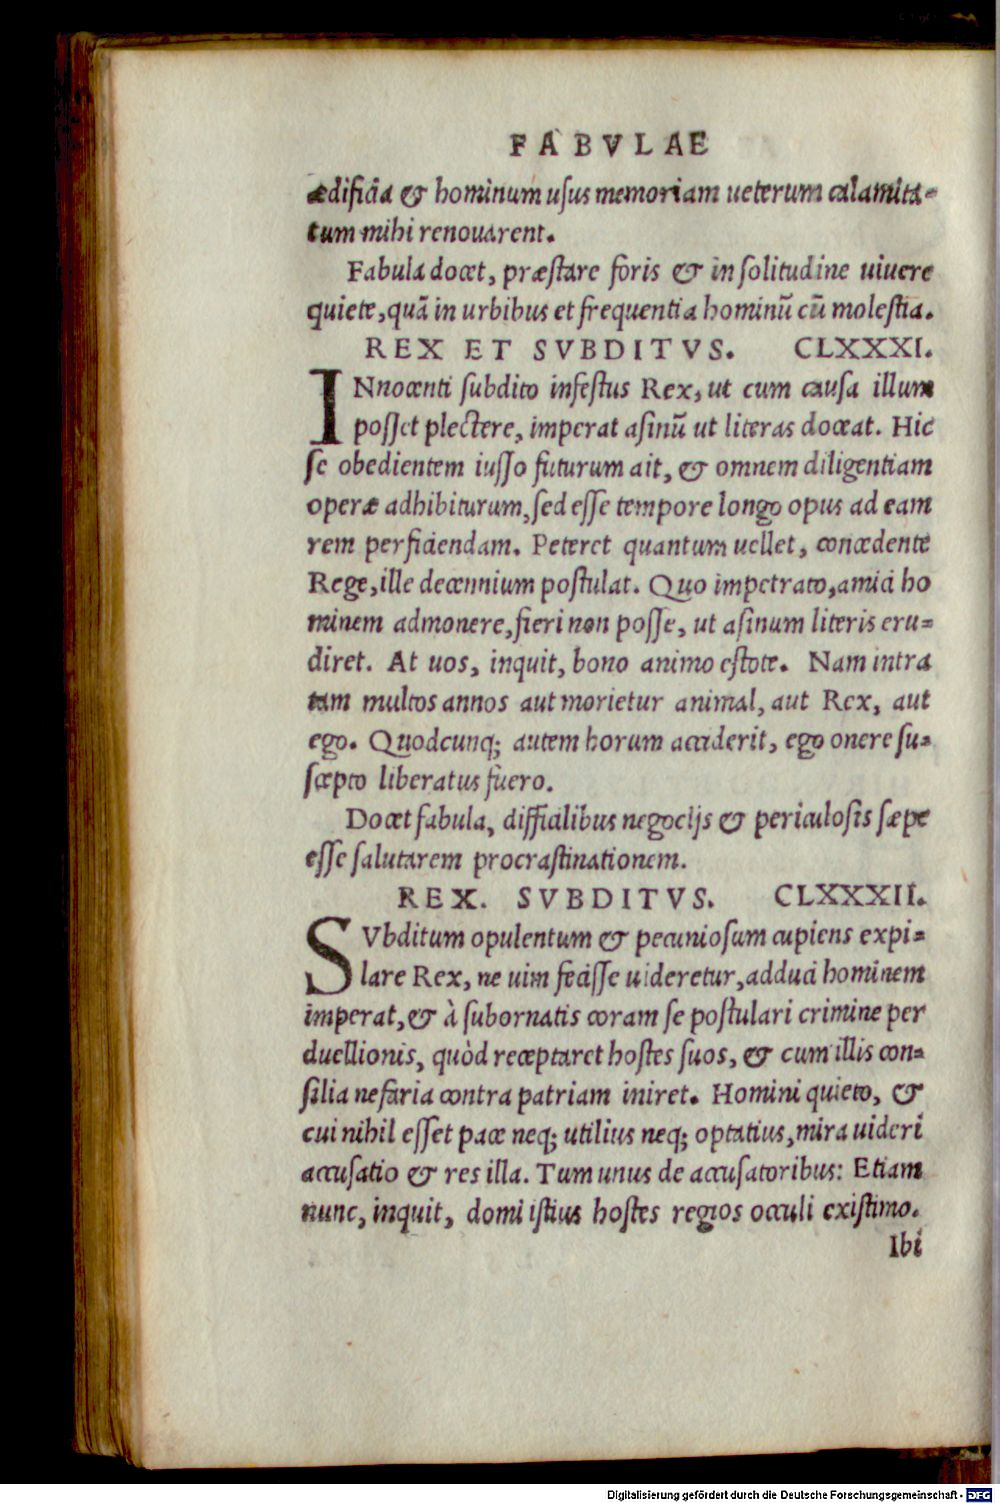 FABVLAE
ædificia & hominum uſus memoriam ueterum calamita=
tum mihi renouarent.
Fabula docet, præſtare foris & in ſolitudine uiuere
quiete, quã in urbibus et frequentia hominũ cũ moleſtia.
REX ET SVBDITVS. CLXXXI.
INnocenti ſubdito infeſtus Rex, ut cum cauſa illum
poſſet plectere, imperat aſinũ ut literas doceat. Hic
ſe obedientem iuſſo futurum ait, & omnem diligentiam
operæ adhibiturum, ſed eſſe tempore longo opus ad eam
rem perficiendam. Peteret quantum uellet, concedente
Rege, ille decennium poſtulat. Quo impetrato, amici ho
minem admonere, fieri non poſſe, ut aſinum literis eru=
diret. At uos, inquit, bono animo eſtote. Nam intra
tam multos annos aut morietur animal, aut Rex, aut
ego. Quodcunq; autem horum acciderit, ego onere ſu=
ſcepto liberatus fuero.
Docet fabula, difficilibus negocijs & periculoſis ſæpe
eſſe ſalutarem procraſtinationem.
REX. SVBDITVS. CLXXXII.
SVbditum opulentum & pecunioſum cupiens expi=
lare Rex, ne uim feciſſe uideretur, adduci hominem
imperat, & à ſubornatis coram ſe poſtulari crimine per
duellionis, quòd receptaret hoſtes ſuos, & cum illis con=
ſilia nefaria contra patriam iniret. Homini quieto, &
cui nihil eſſet pace neq; utilius neq; optatius, mira uideri
accuſatio & res illa. Tum unus de accuſatoribus: Etiam
nunc, inquit, domi iſtius hoſtes regios occuli exiſtimo.
Ibi
Digitalisierung gefördert durch die Deutsche Forschungsgemeinschaft - DFG